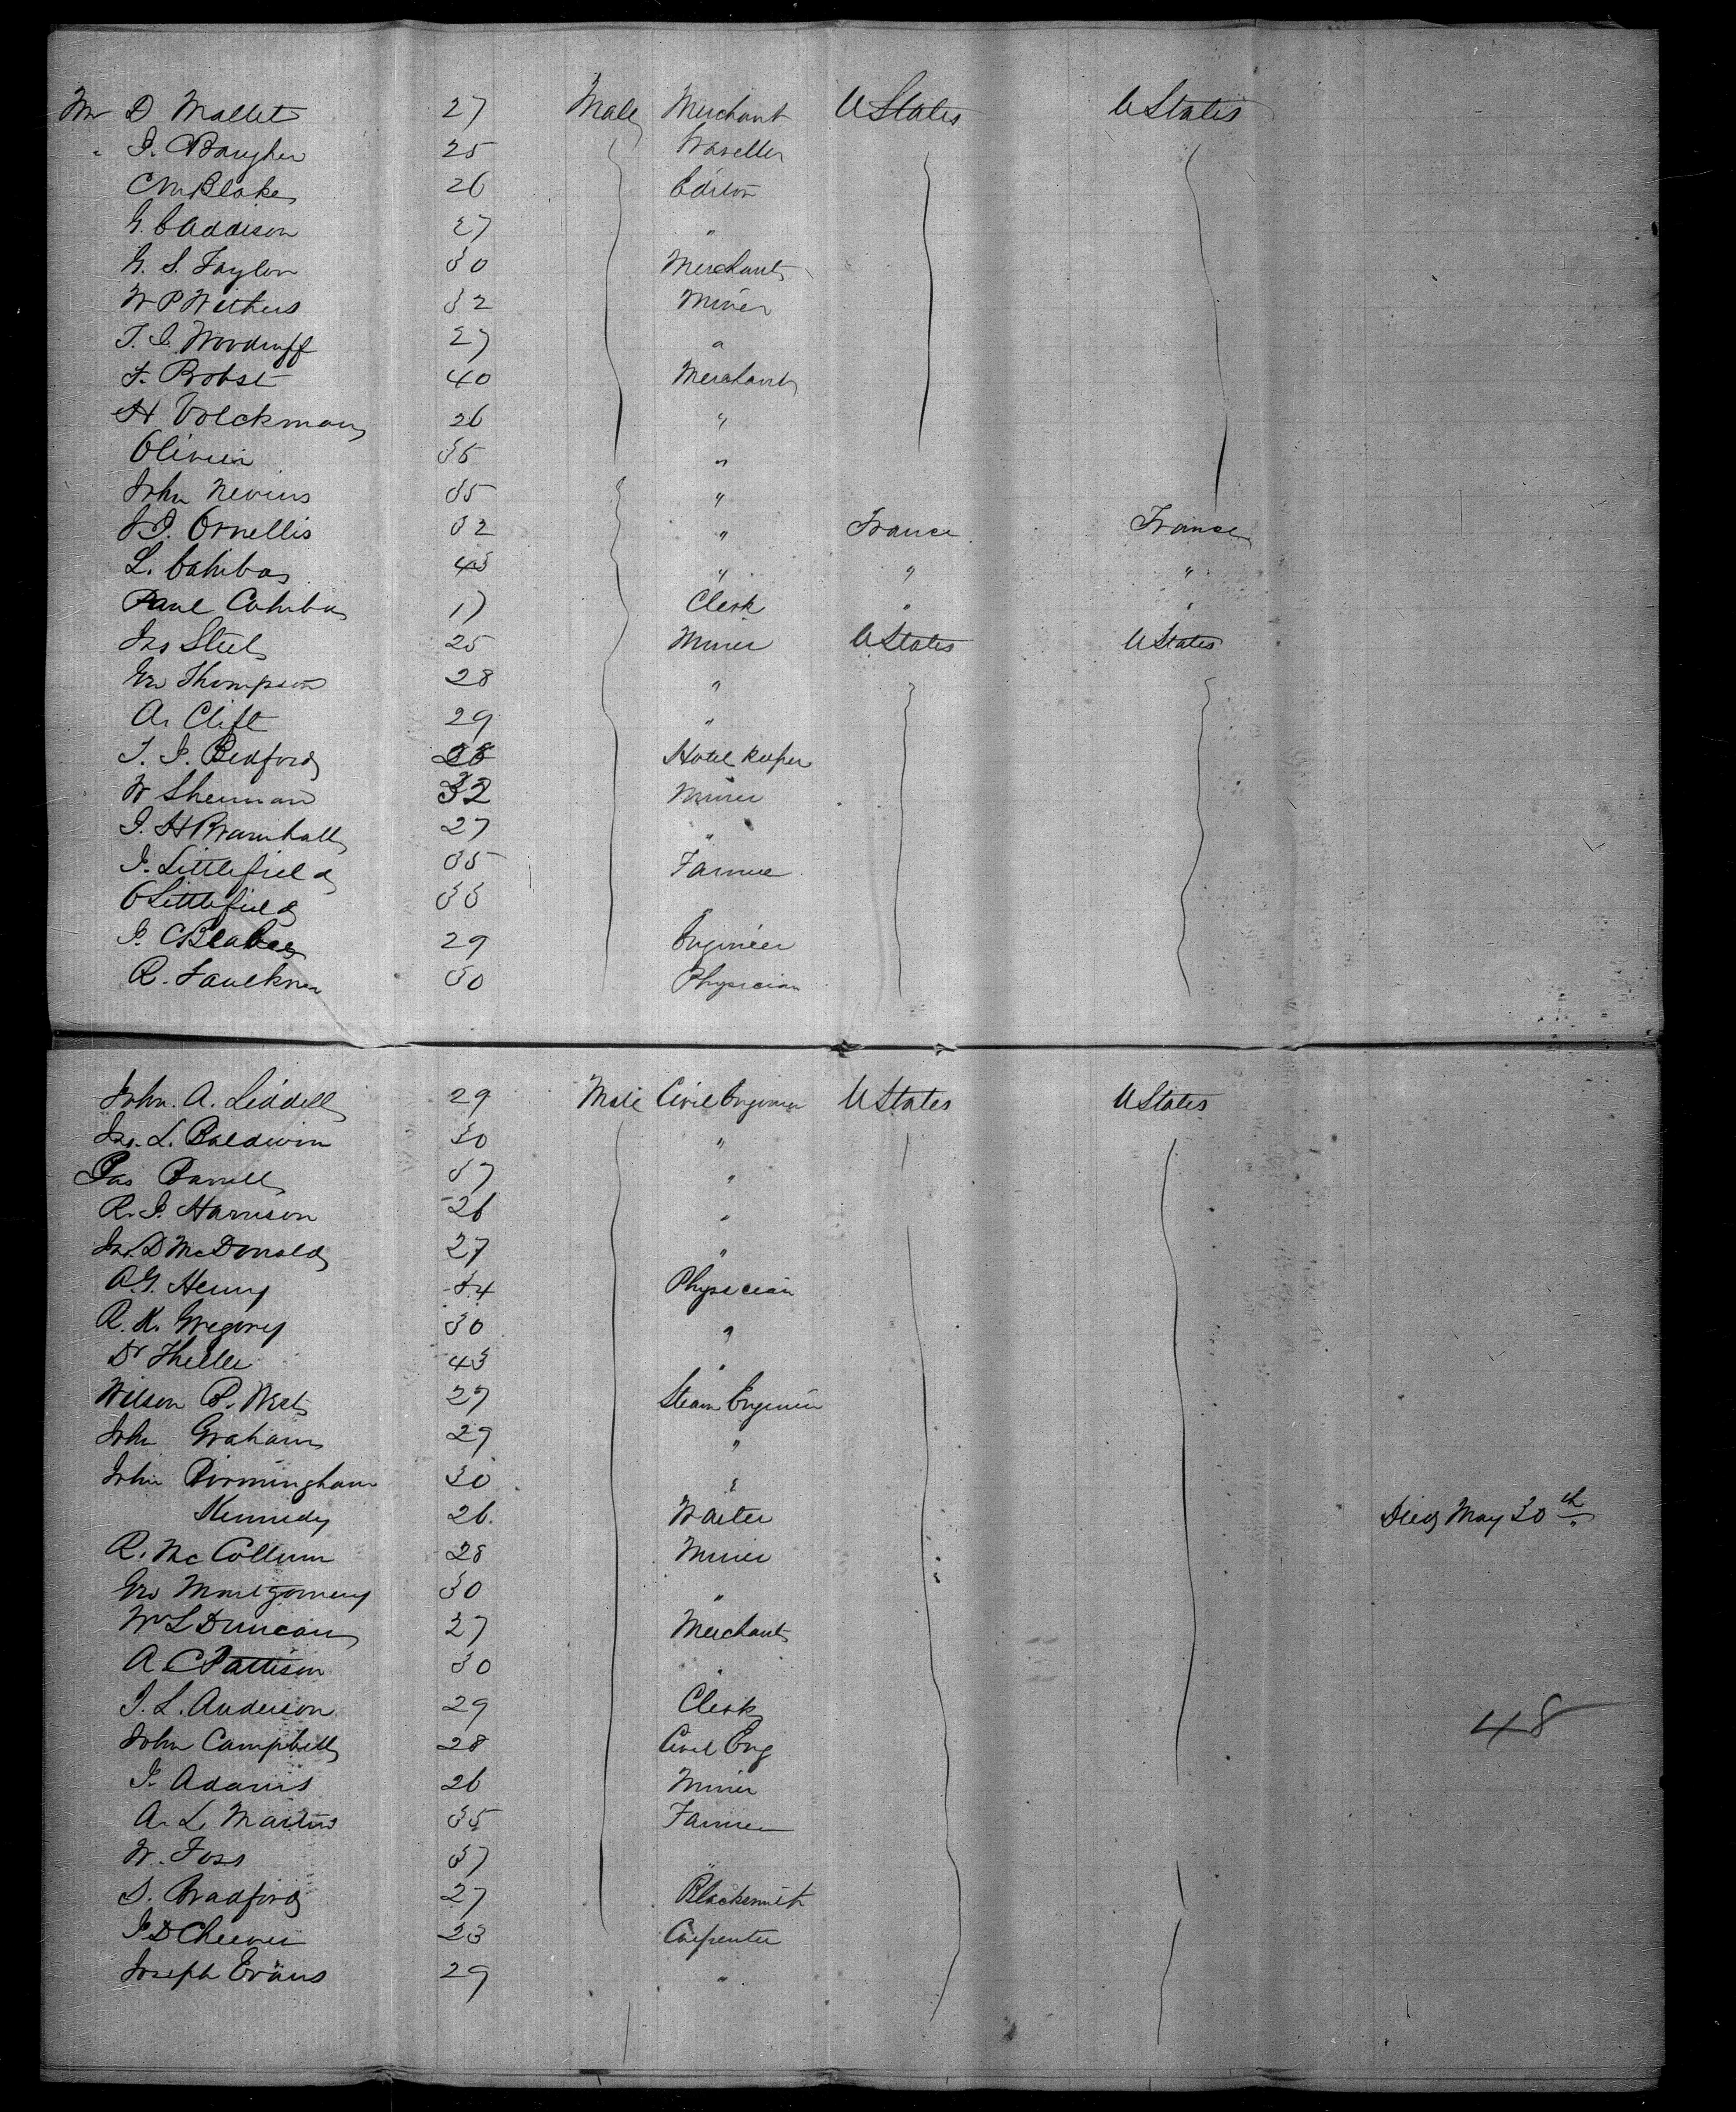 Mr D Mallet 27 Male Merchant U States U States
" J. C Baugher 25 Traveller
C M Blake 26 Editor
G. C Addison 27 "
G. S. Taylor 30 Merchant
W P Withers 32 Miner
T. J. Woodruff 27 "
F. Probst 40 Merchant
H Volckman 26 "
Olivier 35 "
John Nevins 35 "
J J. Ornellis 32 " France France
L. Cahibas 43 " " "
Paul Cahibas 17 Clerk " "
Jas Steel 25 Miner U States U States
Geo Thompson 28 "
A. Clift 29 "
T. J. Bedford Hotel keeper
W Sherman 32 Miner
J. H Bramhall 27 "
J. Littlefield 35 Farmer
O Littlefield 33 "
J. C Blakes 29 Engineer
R. Faulkner 30 Physician
John. A. Liddell 29 Male Civil Engineer U States U States
Jno. L. Baldwin 30 "
Jas Barrell 37 "
R. J. Harrison 26 "
Jno. D McDonald 27 "
A. G. Henry 34 Physician
R. K. Gregory 30 "
Dr Theller 43 "
Wilson P. West 27 Steam Engineer
John Graham 29 "
John Birmingham 30 "
Kennedy 26. Waiter Died May 30th
R. Mc Collum 28 Miner
Geo Montgomery 30 "
Wm L Duncan 27 Merchant
A C Pattison 30 "
J. L. Anderson 29 Clerk 48
John Campbell 28 Civil Eng
J. Adams 26 Miner
A. L. Martin 35 Farmer
W. Foss 37 "
S. Bradford 27 Blacksmith
J D Cheever 23 Carpenter
Joseph Evans 29 "